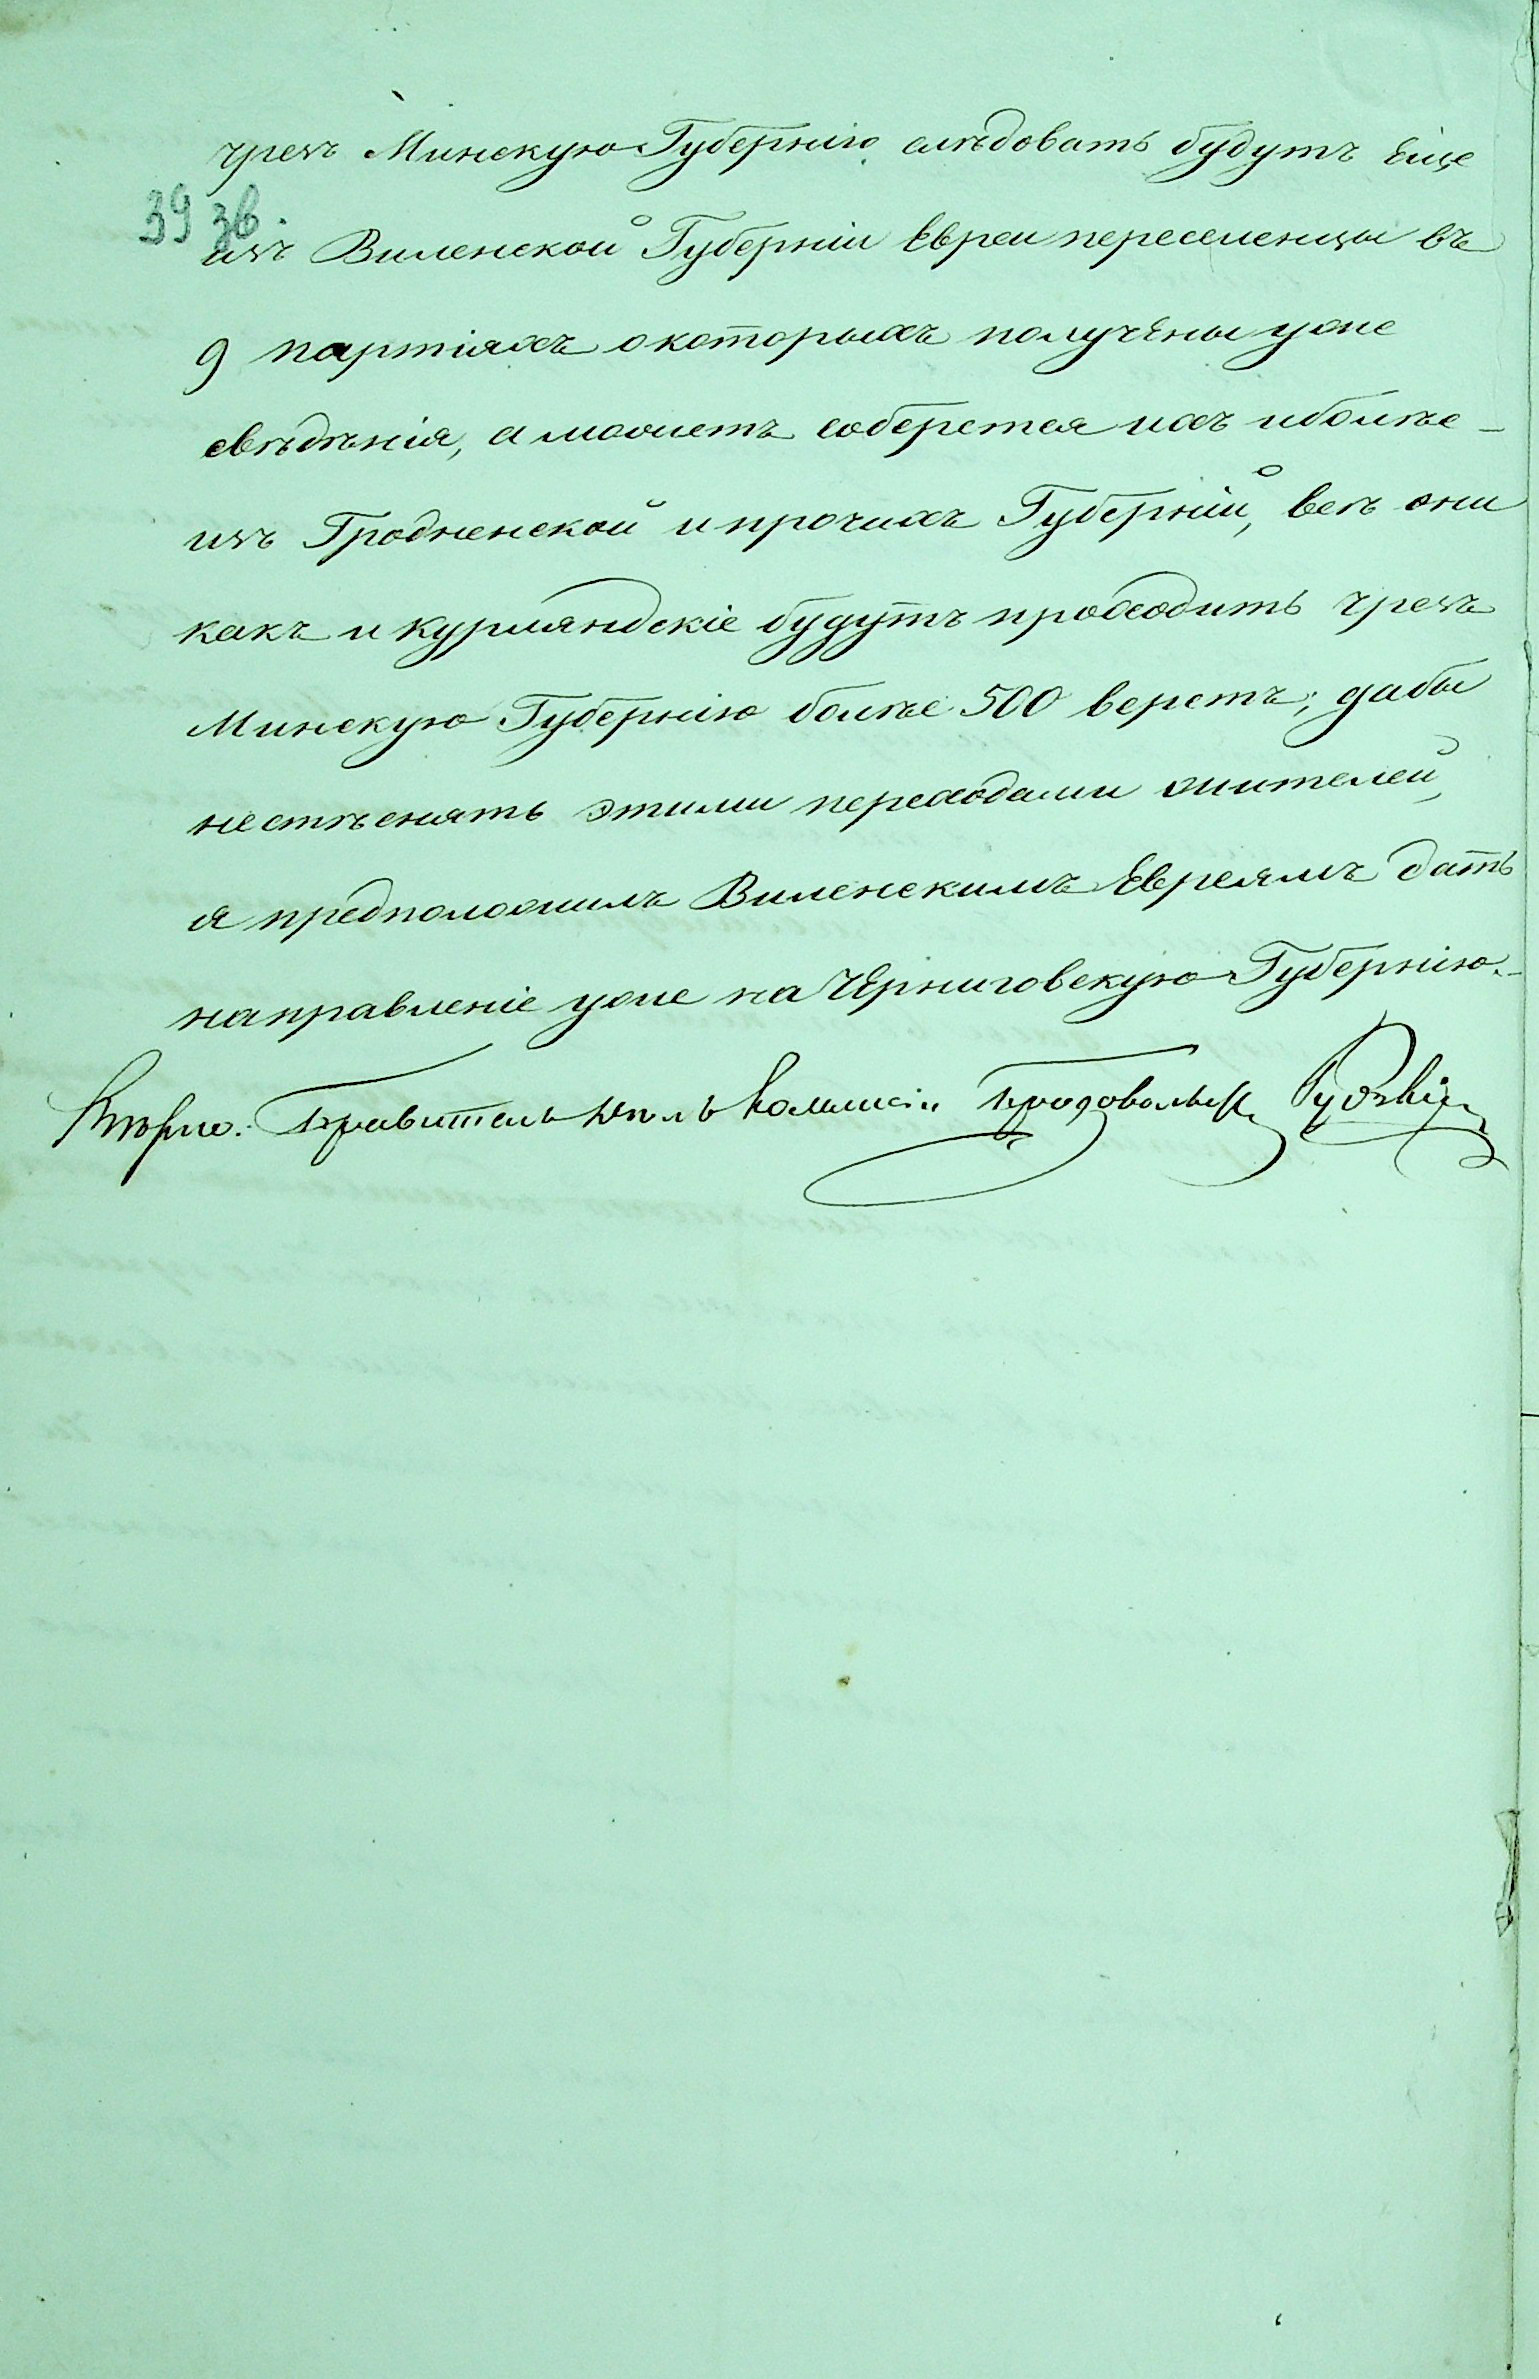 чрезъ Минскую Губернію слѣдовать будутъ еще
39 зв.
изъ Виленской Губерніи Евреи переселенцы въ
9 партіяхъ о которыхъ получены уже
свѣдѣнія, а можетъ соберется ихъ и болѣе
изъ Гродненской и прочихъ Губерній, всѣ они
какъ и курляндскіе будутъ проходить чрезъ
Минскую Губернію болѣе 500 верстъ; дабы
не стѣснять этими переходами жителей,
я предположилъ Виленскимъ Евреямъ дать
направленіе уже на Черниговскую Губернію.
Вѣрно: Правитель дѣлъ Коммисіи Продовольств.